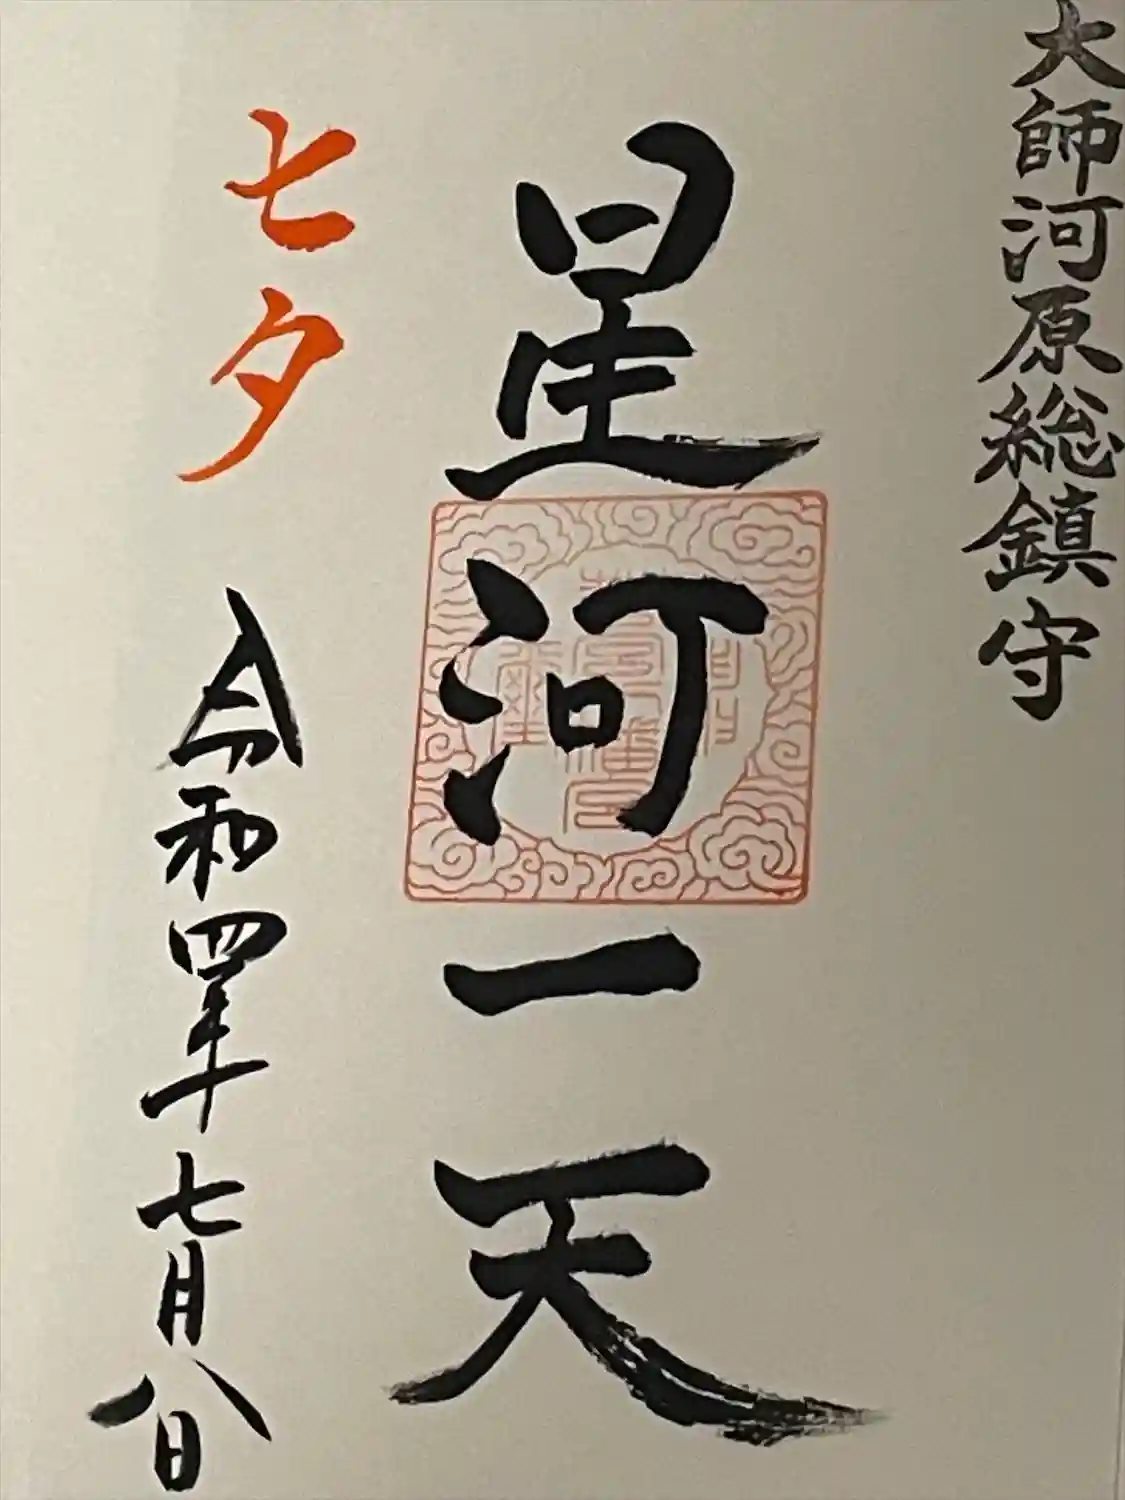 大師河原総鎮守
星河一天
七夕
令和四年七月八日